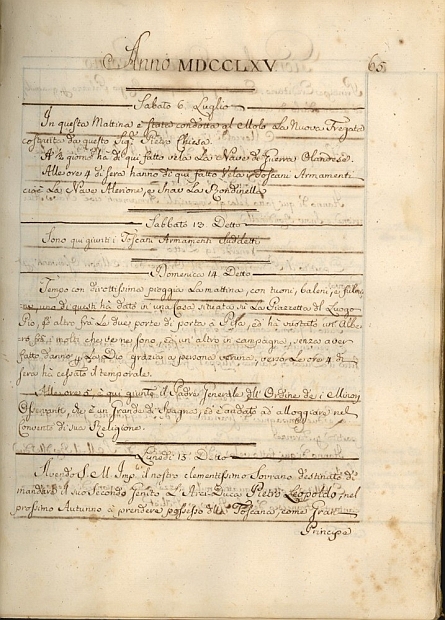 Anno MDCCLXV
65
Sabato 6 Luglio
In questa Mattina è stata condotta al Molo La Nuova Fregata
costruita da questo Sig.r Pietro Chiesa.
A giorno ha di qui fatto vela La Nave di Guerra Olandese.
Alle ore 4 di sera hanno di qui fatto Vela i Toscani Armamenti
cioè La Nave Alerione, e Snau La Rondinella
Sabbato 13 Detto
Sono qui giunti i Toscani Armamenti Suddetti
Domenica 14 Detto
Tempo con dirottissima pioggia La mattina, con tuoni, baleni, e fulmi
ne, uno di questi ha dato in una Casa situata su La Piazzetta del Luogo
Pio, et altro frà Le due porte di porta a Pisa, ed hà guastato un Albe
ro frà i molti che ve ne sono, ed un' altro in campagna, senza aver
fatto danno, La Dio grazia, a persona veruna, verso Le ore 4 di
sera hà cessato il temporale.
Alle ore 5 è qui giunto il Padre Generale dell' Ordine de i Minori
Osservanti, che è un Grande di Spagna, ed è andato ad alloggiare nel
Convento di sua Religione.
Lunedì 15 Detto
Avendo S. M. Imp. il nostro clementissimo Sovrano destinato di
mandare il suo Secondo Genito L'Arci-Duca Pietro Leopoldo, nel
prossimo Autunno à prendere possesso della Toscana, come Gran
Principe